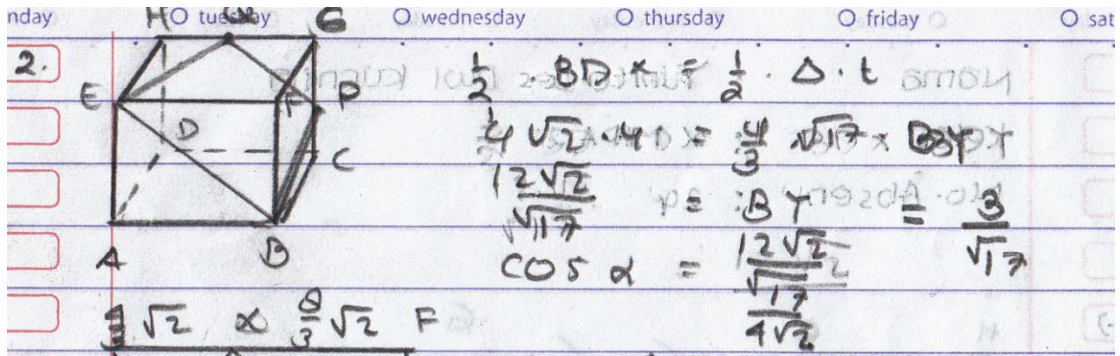 nday O tuesday O wednesday O thursday O friday O sat
H G
2.
E F P
D
C
A B
1/2 . BD x = 1/2 . Δ . t
4 √2 . 4 = 4/3 √17 x BY
12√2/√17 = BY = 3/√17
cos α = 12√2/√17 / 4√2
√2 x 8/3 √2 F